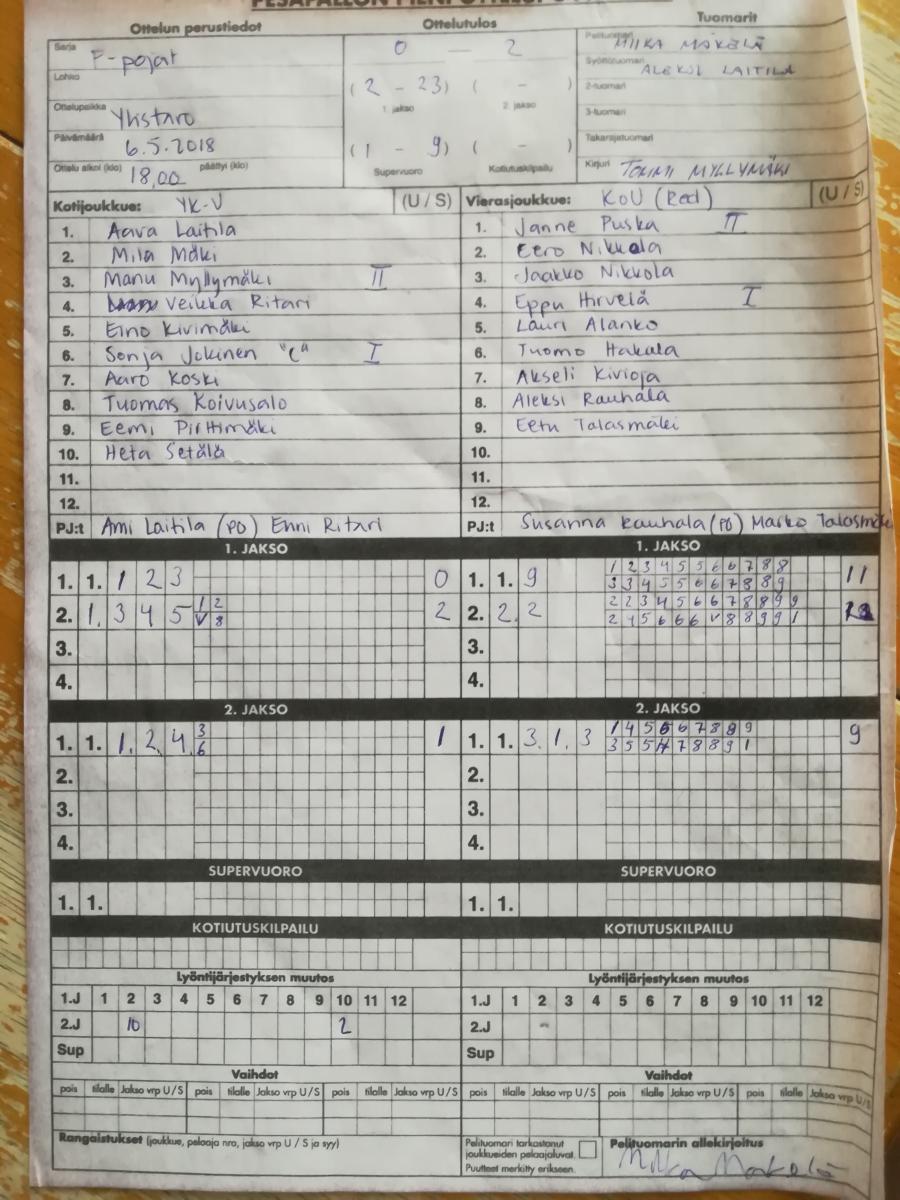 Ottelun perustiedot
Sarja F-pojat
Lohko
Ottelupaikka Ylistaro
Päivämäärä 6.5.2018
Ottelu alkoi (klo) 18,00 päättyi (klo)
Ottelutulos
0 – 2
(2 – 23) ( – )
1. jakso 2. jakso
(1 – 9) ( – )
Supervuoro Kotiutuskilpailu
Tuomarit
Pelituomari MIIKA MÄKELÄ
Syöttötuomari ALEKSI LAITILA
2-tuomari
3-tuomari
Takarajatuomari
Kirjuri TOMMI MYLLYMÄKI
Kotijoukkue: YK-V (U / S)
1. Aava Laitila
2. Mila Mäki
3. Manu Myllymäki II
4. Veikka Ritari
5. Eino Kivimäki
6. Sonja Jokinen "C" I
7. Aaro Koski
8. Tuomas Koivusalo
9. Eemi Pirttimäki
10. Heta Setälä
11.
12.
PJ:t Ami Laitila (PO) Enni Ritari
Vierasjoukkue: KoU (Red) (U / S)
1. Janne Puska II
2. Eero Nikkola
3. Jaakko Nikkola
4. Eppu Hirvelä I
5. Lauri Alanko
6. Tuomo Hakala
7. Akseli Kivioja
8. Aleksi Rauhala
9. Eetu Talasmäki
10.
11.
12.
PJ:t Susanna Rauhala (PO) Marko Talasmäki
1. JAKSO
1. 1. 1 2 3 0
2. 1. 3 4 5 1 2 2
V 8
3.
4.
1. JAKSO
1. 1. 9 1 2 3 4 5 5 6 6 7 8 8 11
3 3 4 5 5 6 6 7 8 8 9
2. 2. 2 2 2 3 4 5 6 6 7 8 8 9 9
2 4 5 6 6 6 V 8 8 9 9 1
3.
4.
2. JAKSO
1. 1. 1. 2. 4. 3 1
6
2.
3.
4.
2. JAKSO
1. 1. 3. 1. 3 1 4 5 5 6 7 8 8 9 9
3 5 5 7 8 8 9 1
2.
3.
4.
SUPERVUORO
1. 1.
SUPERVUORO
1. 1.
KOTIUTUSKILPAILU
KOTIUTUSKILPAILU
Lyöntijärjestyksen muutos
1.J 1 2 3 4 5 6 7 8 9 10 11 12
2.J 10 2
Sup
Lyöntijärjestyksen muutos
1.J 1 2 3 4 5 6 7 8 9 10 11 12
2.J -
Sup
Vaihdot
pois tilalle Jakso vrp U / S pois tilalle Jakso vrp U / S pois tilalle Jakso vrp U / S
Vaihdot
pois tilalle Jakso vrp U / S pois tilalle Jakso vrp U / S pois tilalle Jakso vrp U / S
Rangaistukset (joukkue, pelaaja nro, jakso vrp U / S ja syy)
Pelituomari tarkastanut
joukkueiden pelaajaluvat.
Puutteet merkitty erikseen.
Pelituomarin allekirjoitus
Miika Mäkelä